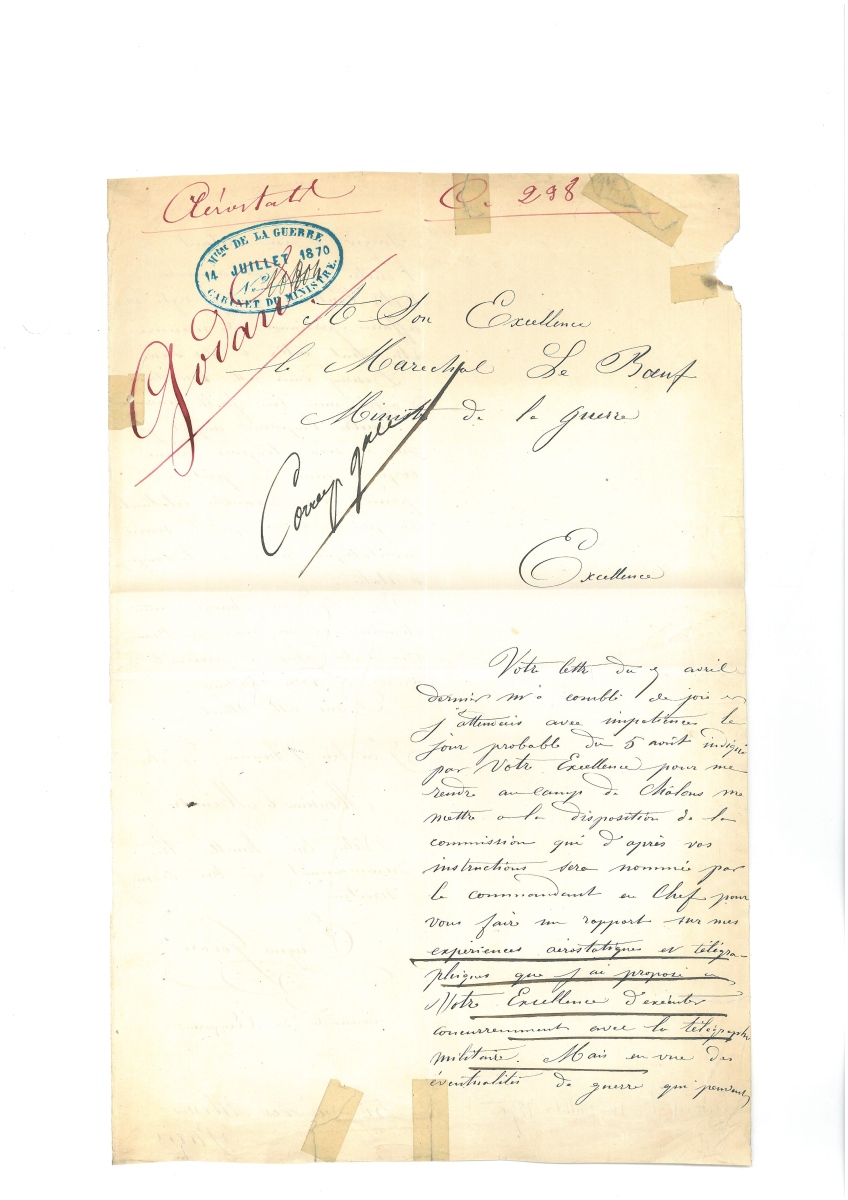 Aérostat
C. 298
Mtère DE LA GUERRE
14 JUILLET 1870
CABINET DU MINISTRE.
Godard
A Son Excellence
le Marechal Le Bœuf
Ministre de la guerre
Corresp gale
Excellence
Votre lettre du 5 avril
dernier m'a comblé de joie et
j'attendais avec impatiences le
jour probable du 5 août indiqué
par Votre Excellence pour me
rendre au camp de Châlons me
mettre a la disposition de la
commission qui d'après vos
instructions sera nommée par
le commandant en Chef pour
vous faire un rapport sur mes
expériences aérostatiques et télégra-
phiques que j'ai proposé a
Votre Excellence d'exécuter
concurremment avec la télégraphie
militaire. Mais en vue des
éventualités de guerre qui peuvent